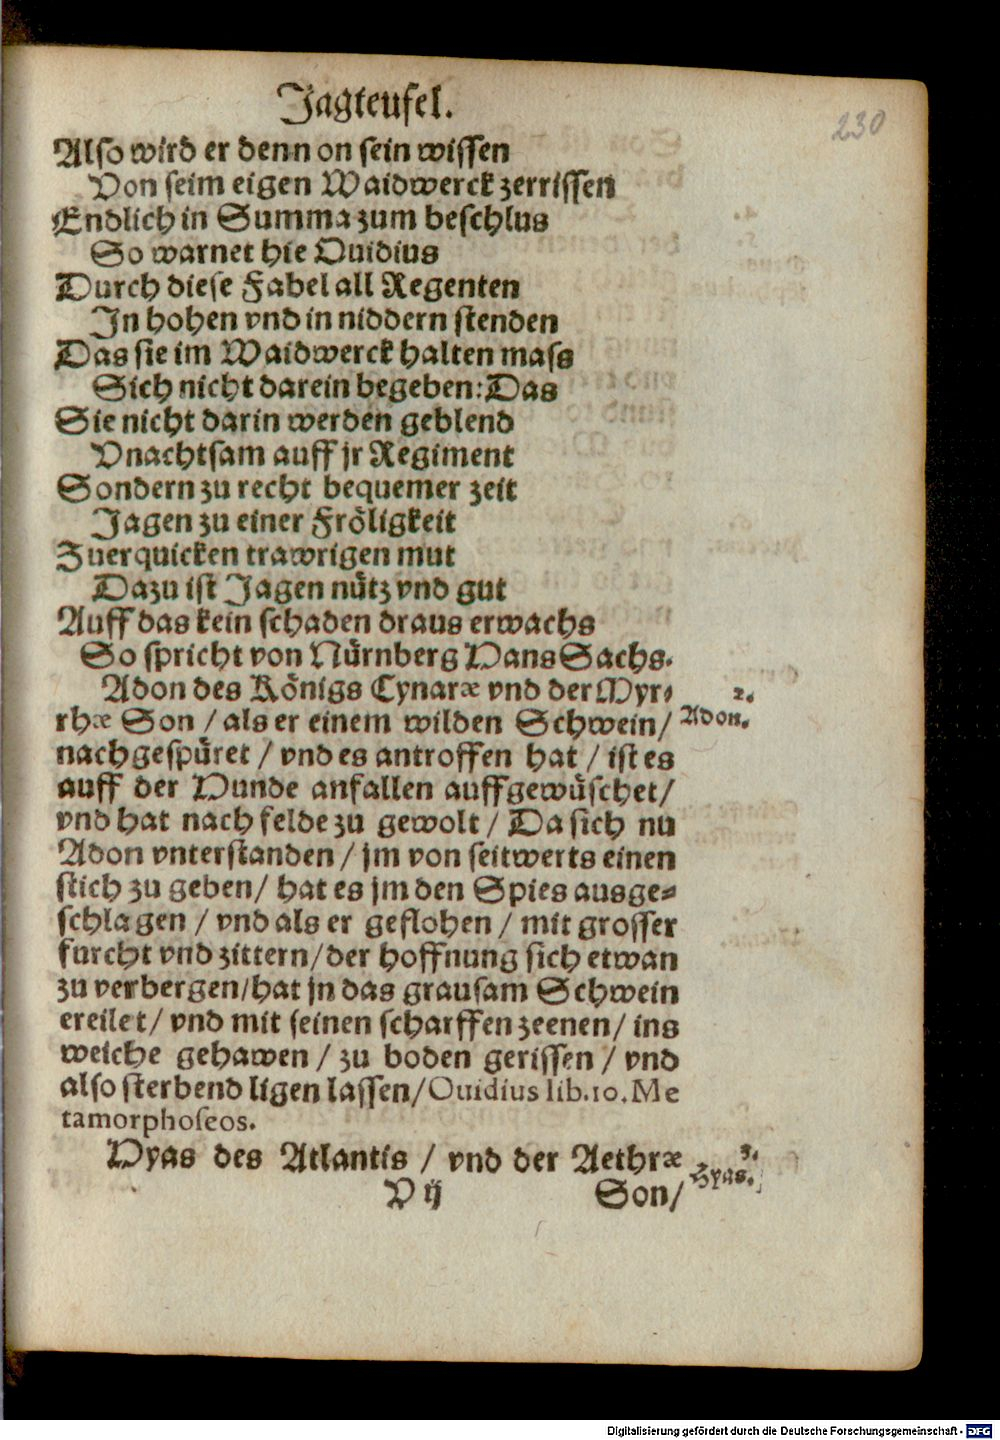 Jagteufel.
230
Also wird er denn on sein wissen
Von seim eigen Waidwerck zerrissen
Endlich in Summa zum beschlus
So warnet hie Ouidius
Durch diese Fabel all Regenten
In hohen vnd in niddern stenden
Das sie im Waidwerck halten mass
Sich nicht darein begeben: Das
Sie nicht darin werden geblend
Vnachtsam auff jr Regiment
Sondern zu recht bequemer zeit
Jagen zu einer Fröligkeit
Zuerquicken trawrigen mut
Dazu ist Jagen nütz vnd gut
Auff das kein schaden draus erwachs
So spricht von Nürnberg Hans Sachs.
Adon des Königs Cynaræ vnd der Myr-
2.
rhæ Son / als er einem wilden Schwein /
Adon.
nachgespüret / vnd es antroffen hat / ist es
auff der Hunde anfallen auffgewüschet /
vnd hat nach felde zu gewolt / Da sich nu
Adon vnterstanden / jm von seitwerts einen
stich zu geben / hat es jm den Spies ausge-
schlagen / vnd als er geflohen / mit grosser
furcht vnd zittern / der hoffnung sich etwan
zu verbergen / hat jn das grausam Schwein
ereilet / vnd mit seinen scharffen zeenen / ins
weiche gehawen / zu boden gerissen / vnd
also sterbend ligen lassen / Ouidius lib. 10. Me
tamorphoseos.
Hyas des Atlantis / vnd der Aethræ
3.
Hyas.
H ij
Son /
Digitalisierung gefördert durch die Deutsche Forschungsgemeinschaft - DFG